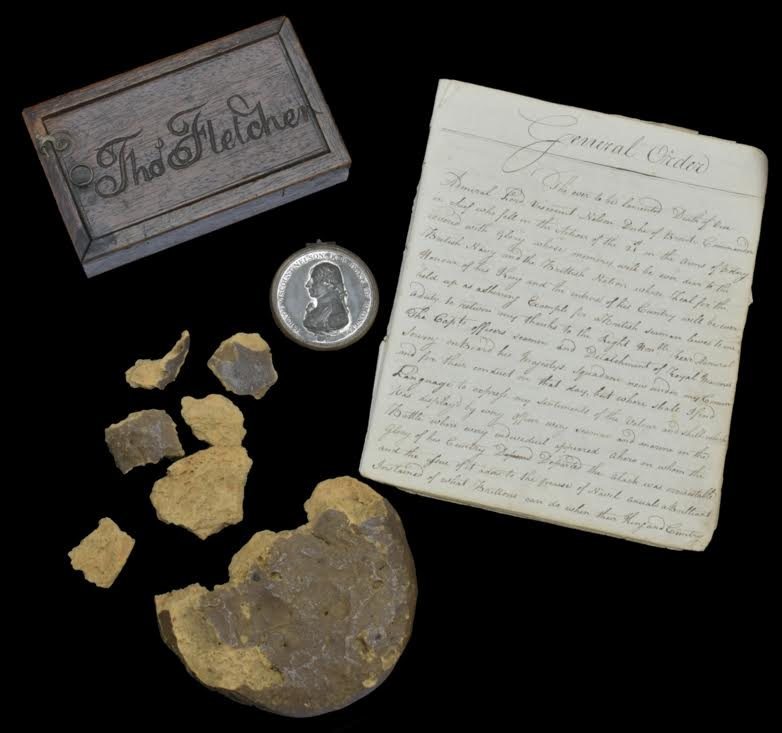 Thos Fletcher
General Order
The ever to be lamented Death of Vice
Admiral Lord Viscount Nelson Duke of Bronti Commander
in Chief who fell in the Action of the 21st in the Arms of Victory
covered with Glory whose memory will be ever dear to the
British Navy and the Brittish Nation whose Zeal for the
Honour of his King and the interest of his Country will be ever
held up as a shining Example for a Brittish seaman leaves to me
a duty to return my thanks to the Right Honble Rear Admiral
The Captns officers seamen and Detatchment of Royal Marines
serving on Board his Majestys Squadron now under my Command
and for their conduct on that day, but where shall I find
Language to express my sentiments of the Valour and skill which
Was displayed by every officer every seaman and marine in the
Battle where every individual appeared a hero on whom the
Glory of his Country Depended the attack was irresistable
and the Issue of it adds to the of Naval Annals a Brilliant
Instance of what Brittons can do when their King and Country